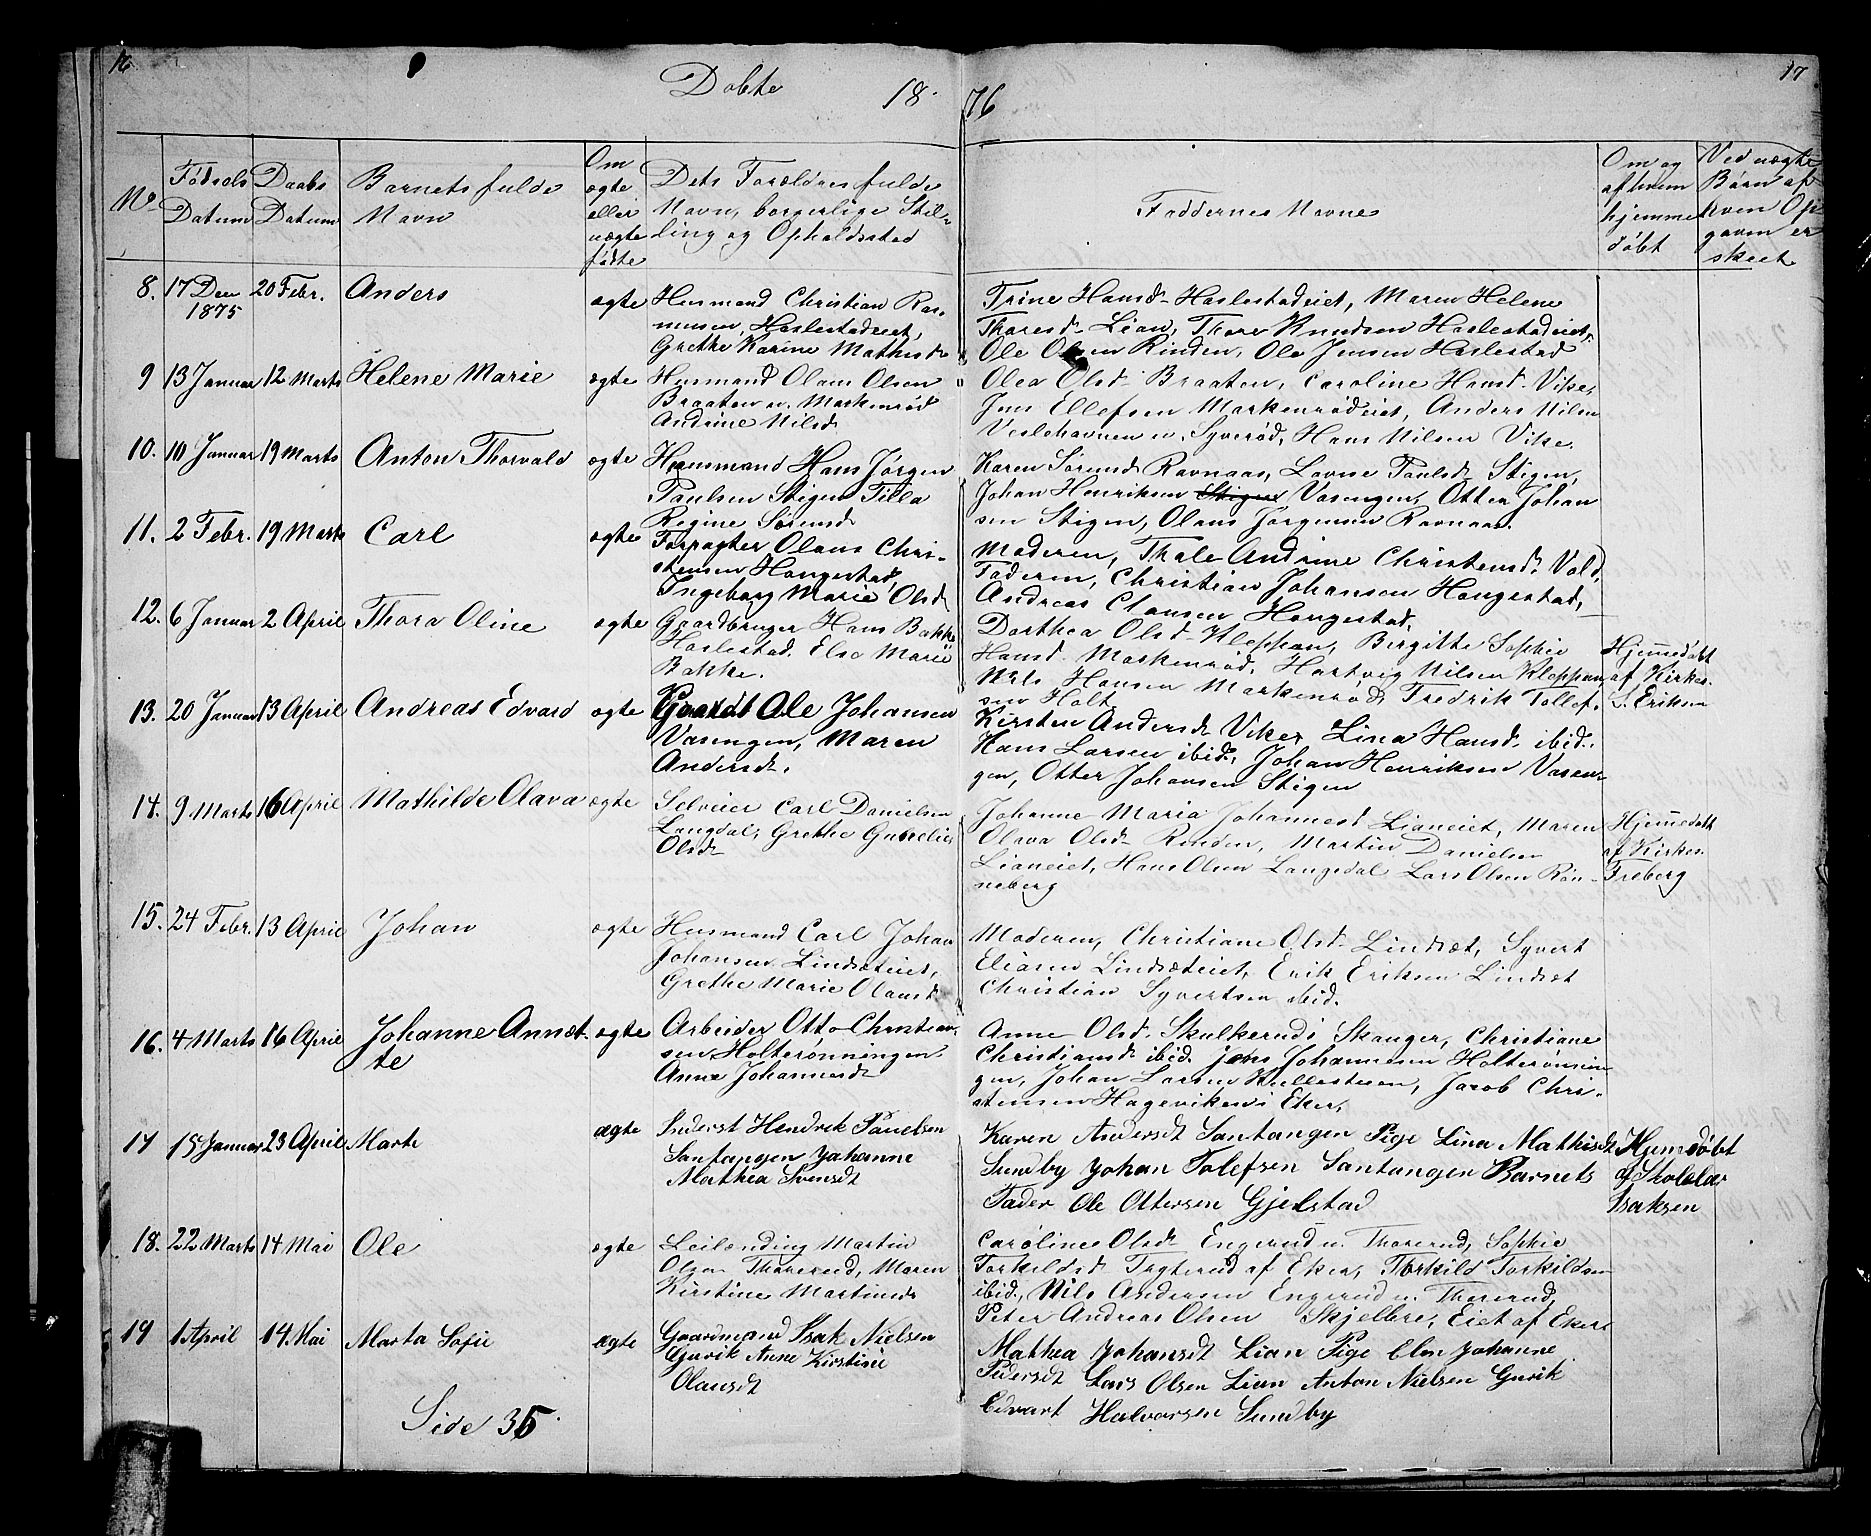 16
17
Døbte 18 76
No
Fødsels Datum
Daabs Datum
Barnets fulde Navn
Om ægte eller uægte fødte
Dets Forældres fulde Navn, borgerlige Stilling og Opholdssted
Faddernes Navne
Om og af hvem hjemmedøbt
Ved uægte Børn af hvem Opgaven er skeet
8. 17 Dec 1875 20 Febr. Anders ægte
Husmand Christian Ras-
mussen, Haslestadeiet,
Grethe Karine Mathisd
Trine Hansd. Haslestadeiet, Maren Helene
Thoresd. Lian, Thore Knudsen Haslestadeiet,
Ole Olsen Rinden, Ole Jensen Haslestad
9 13 Januar 12 Marts Helene Marie ægte
Husmand Olaus Olsen
Braaten u. Markenrød
Andrine Nilsd.
Olea Olsd. Braaten, Caroline Hansd. Vike,
Jens Ellefsen Markenrødeiet, Anders Nilsen
Veslehavnen u. Syverød, Hans Nilsen Vike.
10. 10 Januar 19 Marts Anton Thorvald ægte
Husmand Hans Jørgen
Paulsen Stigen Tilla
Regine Sørensd
Karen Sørensd. Ravnaas, Lovise Paulsd. Stigen,
Johan Henriksen Stigen Vasengen, Otter Johan
sen Stigen, Olaus Jørgensen Ravnaas.
11. 2 Febr. 19 Marts Carl ægte
Forpagter Olaus Chri-
stensen Hangestad,
Ingeborg Marie Olsd
Moderen, Thale Andrine Christensd. Vold,
Faderen, Christian Johansen Hangestad,
Andreas Clausen Hangestad.
12. 6 Januar 2 April Thora Oline ægte
Gaardbruger Hans Bakke
Haslestad. Else Marie
Bakke.
Dorthea Olsd. Kleppan, Birgitte Sophie
Hansd. Markenrød, Hartvig Nilsen Kleppan,
Nils Hansen Markenrød, Fredrik Tollef-
sen Holt.
Hjemmedøbt
af Kirkes.
S. Eriksen
13. 20 Januar 13 April Andreas Edvard ægte
Gaardbr Ole Johansen
Vasengen, Maren
Andersd.
Kirsten Andersd. Viker, Lina Hansd. ibid.
Hans Larsen ibid., Johan Henriksen Vasen-
gen, Otter Johansen Stigen
14. 9 Marts 16 April Mathilde Olava ægte
Selveier Carl Danielsen
Langdal, Grethe Gunelie
Olsd
Johanne Maria Johannesd. Lianeiet, Maren
Olava Olsd. Rinden, Martin Danielsen
Lianeiet, Hans Olsen Langedal Lars Olsen Røn-
neberg
Hjemmedøbt
af Kirkes.
Freberg
15. 24 Febr. 13 April Johan ægte
Husmand Carl Johan
Johansen Lindsæteiet,
Grethe Marie Olausd
Moderen, Christiane Olsd. Lindsæt, Syvert
Eliasen Lindsæteiet, Erik Eriksen Lindsæt
Christian Syvertsen ibid.
16. 4 Marts 16 April Johanne Annet-
te ægte
Arbeider Otto Christian-
sen, Holterønningen
Anne Johannesd
Anne Olsd. Skulkerud i Skauger, Christiane
Christiansd. ibid. Jens Johannesen Holterønnin-
gen, Johan Larsen Kullesteen, Jacob Chri-
stensen Hageviken i Eker.
17 15 Januar 23 April Marte ægte
Inderst Hendrek Paulsen
Santangen Johanne
Mathea Svensdt
Karen Andersdt Santangen Pige Lina Mathisdt
Sundby Johan Tolefsen Santangen Barnets
Fader Ole Ottersen Gjelstad
Hjemdøbt
af Skolelær
Isaksen
18. 22 Marts 14 Mai Ole ægte
Leilænding Martin
Olsen Thorerud, Maren
Kirstine Martinsd
Caroline Olsd. Engerud u. Thorerud, Sophie
Torkildsd. Tryterud af Eker, Torkild Torkildsen
ibid., Nils Andersen Engerud u. Thorerud,
Peter Andreas Olsen Skjelbre, Eiet af Eker
19 1. April 14. Mai Marta Sofie ægte
Gaardmand Isak Nielsen
Gurik Anne Kirstine
Olausdt
Mathea Johansdt Lian Pige Elen Johanne
Pedersdt Lars Olsen Lian Anton Nielsen Gurik
Edvart Halvorsen Sundby
Side 35